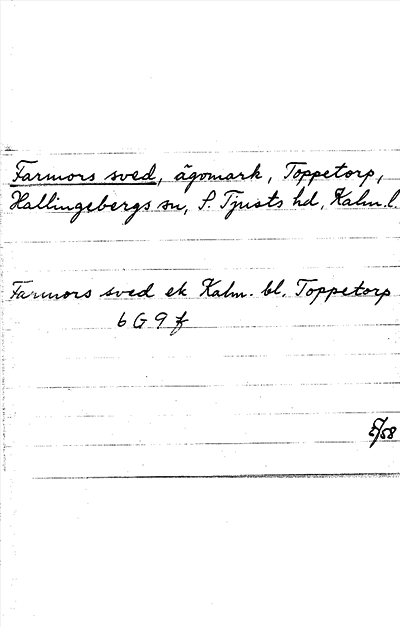 Farmors sved, ägomark, Toppetorp,
Hallingebergs sn, S. Tjusts hd, Kalm. l.
Farmors sved ek Kalm. bl. Toppetorp
6 G 9 f